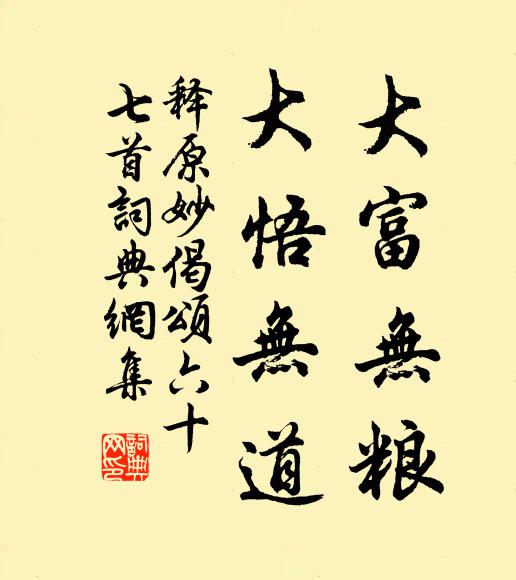 大富無粮
大悟無道
释原妙偈頌六十
七首詞典網集
詞典网印